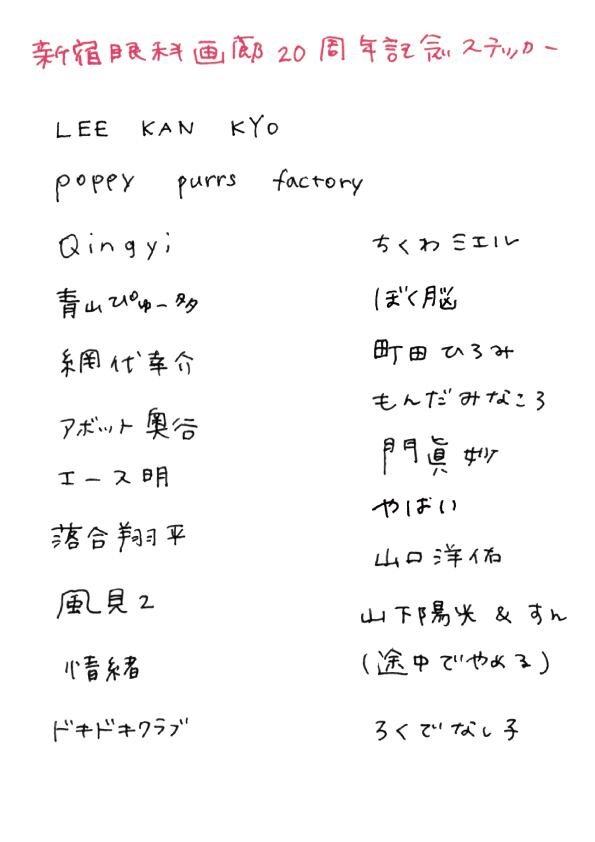 新宿眼科画廊20周年記念ステッカー
LEE KAN KYO
poppy purrs factory
Qingyi
青山ぴゅー多
網代幸介
アボット奥谷
エース明
落合翔平
風見2
情緒
ドキドキクラブ
ちくわミエル
ぼく脳
町田ひろみ
もんだみなころ
門眞妙
やばい
山口洋佑
山下陽光 & すん
(途中でやめる)
ろくでなし子